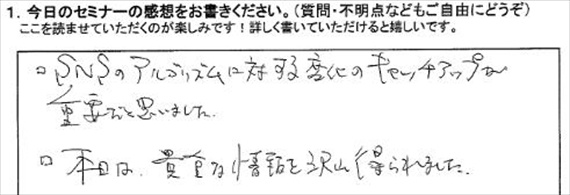 1. 今日のセミナーの感想をお書きください。(質問・不明点などもご自由にどうぞ)
ここを読ませていただくのが楽しみです！詳しく書いていただけると嬉しいです。
□ SNSのアルゴリズムに対する変化のキャッチアップが
重要だと思いました。
□ 本日は、貴重な情報を沢山得られました。